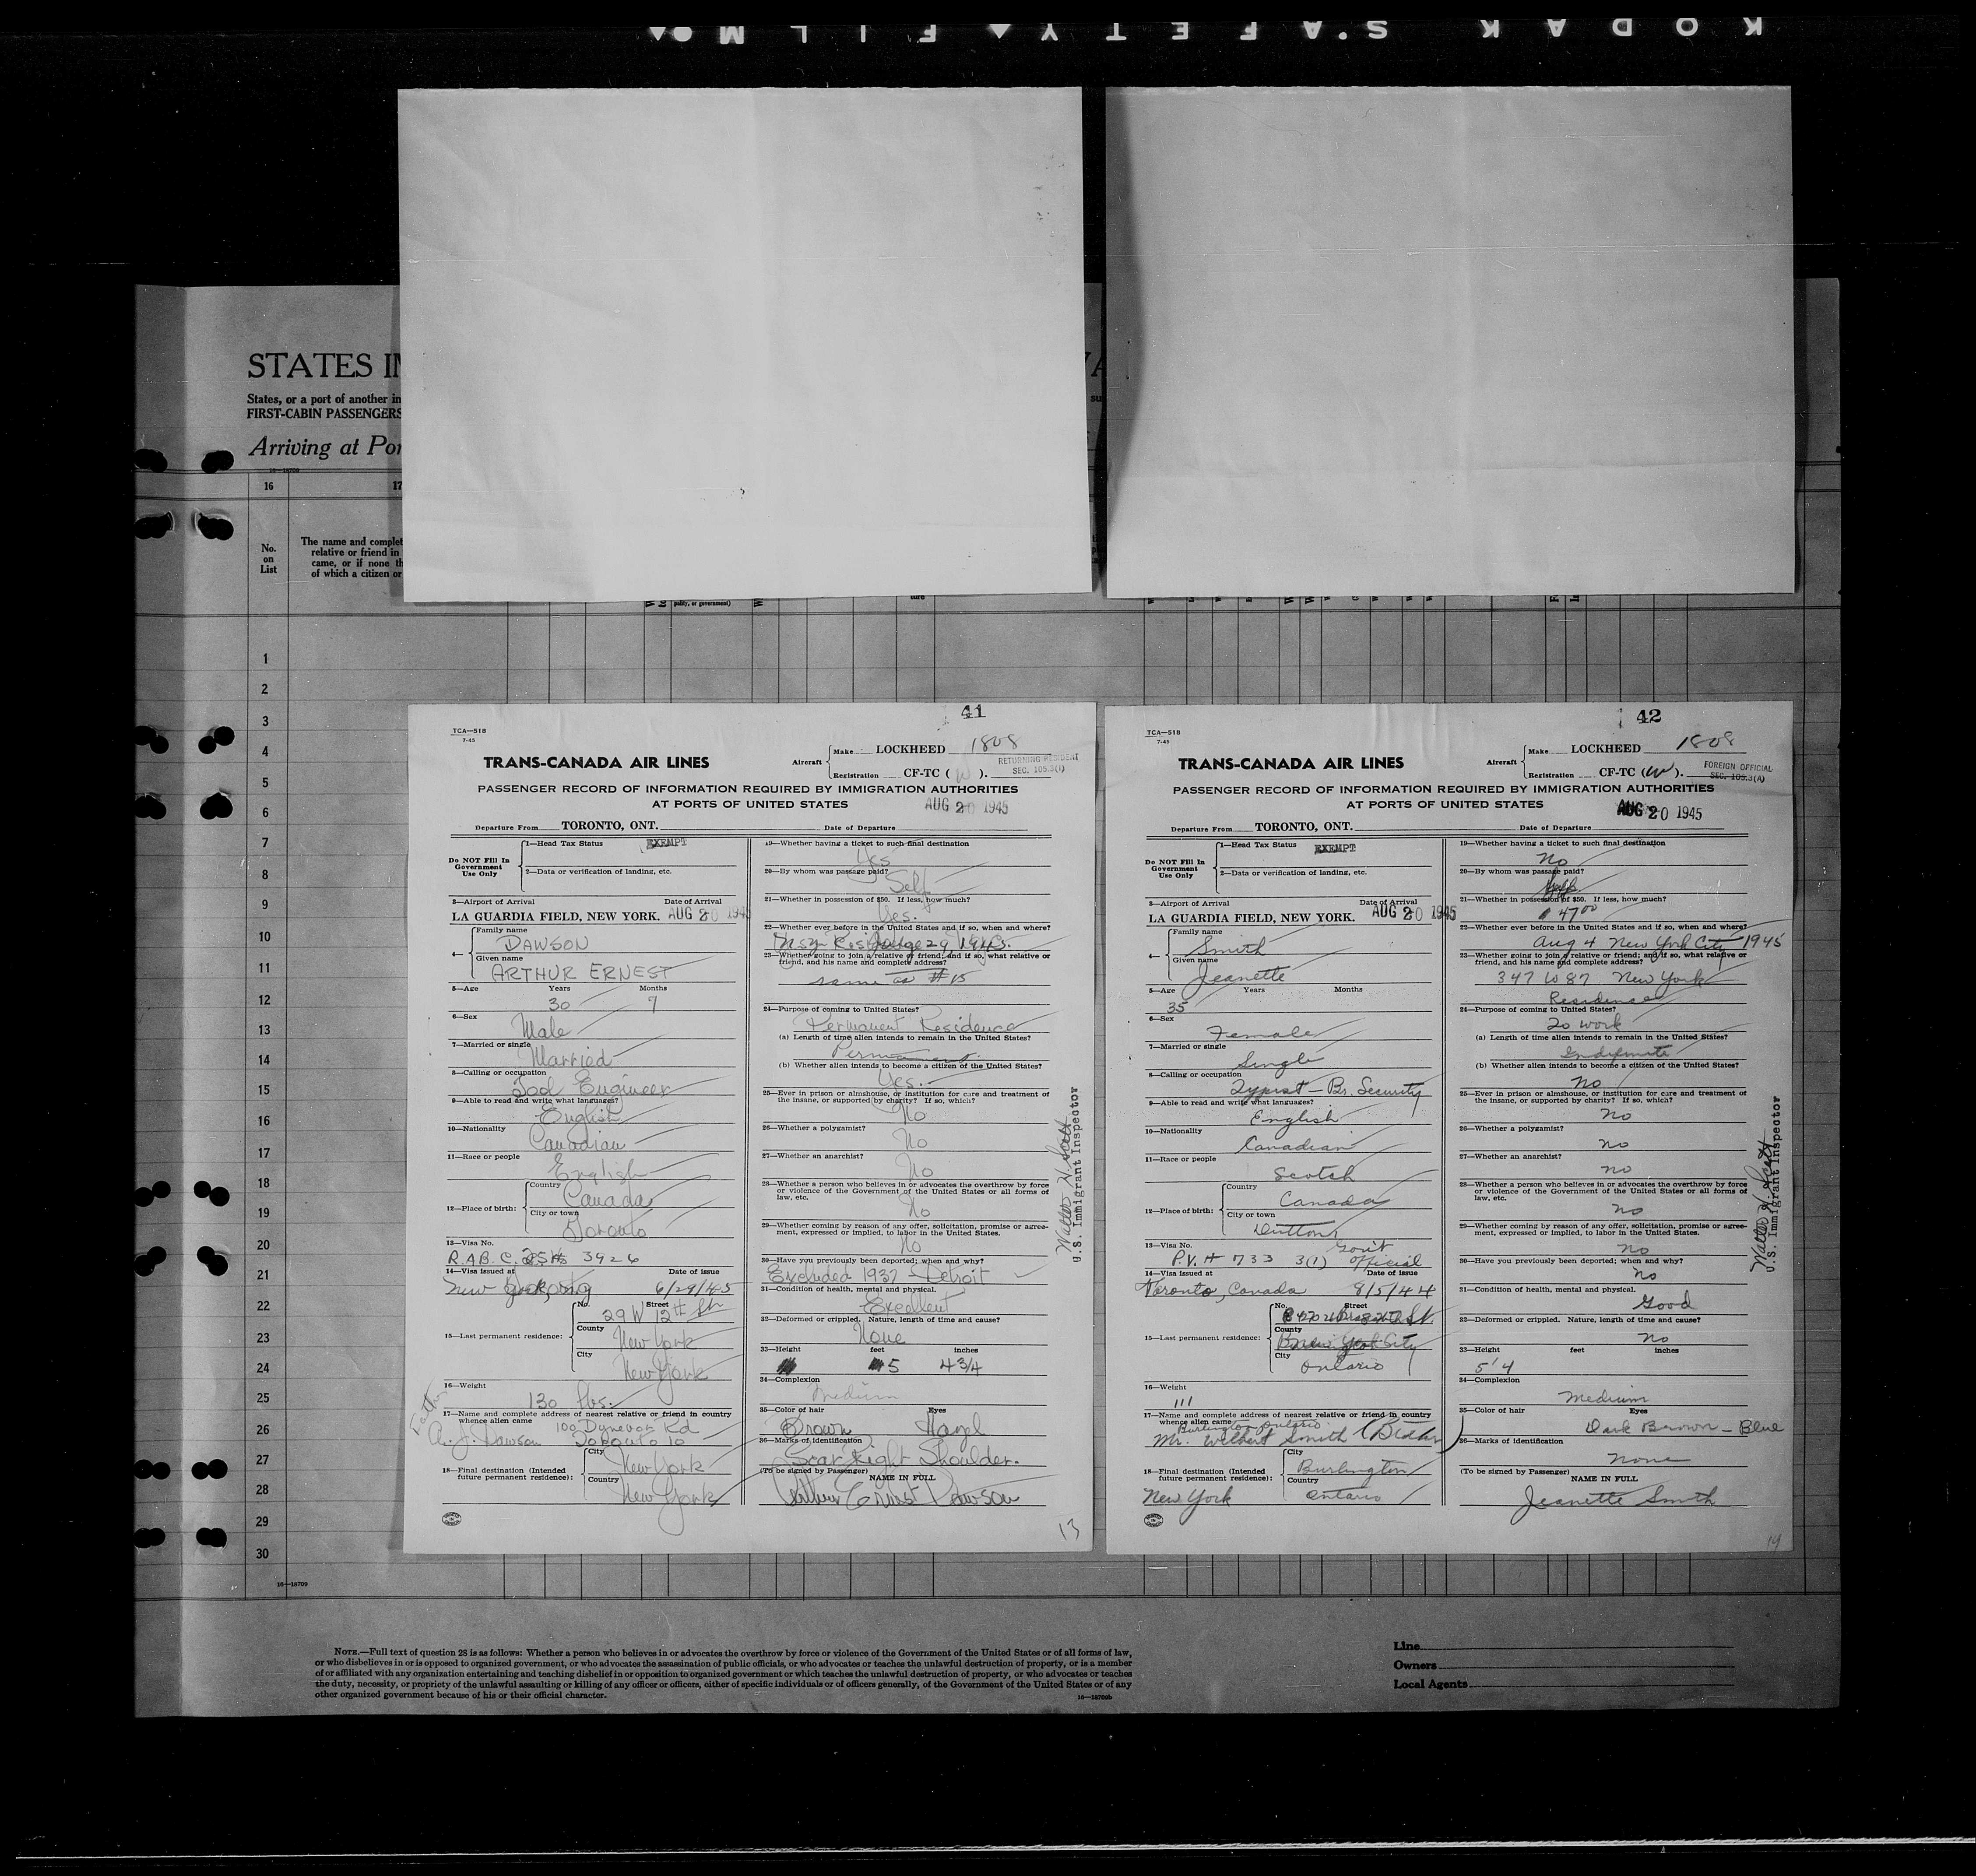 KODAK SAFETY FILM
STATES I
States, or a port of another in
FIRST-CABIN PASSENGERS
Arriving at Por
16—18709
16
17
No.
on
List
The name and complet
relative or friend in
came, or if none th
of which a citizen or
pality, or government)
ture
1
2
3
4
5
6
7
8
9
10
11
12
13
14
15
16
17
18
19
20
21
22
23
24
25
26
27
28
29
30
16—18709
41
TCA—518
7-45
TRANS-CANADA AIR LINES
Aircraft
Make LOCKHEED 1808
Registration CF-TC (W).
RETURNING RESIDENT
SEC. 105.3(1)
PASSENGER RECORD OF INFORMATION REQUIRED BY IMMIGRATION AUTHORITIES
AT PORTS OF UNITED STATES
AUG 20 1945
Departure From TORONTO, ONT.
Date of Departure
Do NOT Fill In
Government
Use Only
1—Head Tax Status EXEMPT
2—Data or verification of landing, etc.
3—Airport of Arrival Date of Arrival
LA GUARDIA FIELD, NEW YORK. AUG 20 1945
4—
Family name
DAWSON
Given name
ARTHUR ERNEST
5—Age Years Months
30 7
6—Sex
Male
7—Married or single
Married
8—Calling or occupation
Tool Engineer
9—Able to read and write what languages?
English
10—Nationality
Canadian
11—Race or people
English
12—Place of birth:
Country
Canada
City or town
Toronto
13—Visa No.
R.A.B.C. 3926
14—Visa issued at Date of issue
New York 6/29/45
15—Last permanent residence:
No. Street
29 W 12th St
County
New York
City
New York
16—Weight
130 lbs.
17—Name and complete address of nearest relative or friend in country
whence alien came
Father
100 Dunevan Rd
A. J. Dawson Toronto 10
18—Final destination (Intended
future permanent residence):
City
New York
Country
New York
19—Whether having a ticket to such final destination
Yes
20—By whom was passage paid?
Self
21—Whether in possession of $50. If less, how much?
Yes.
22—Whether ever before in the United States and if so, when and where?
23—Whether going to join a relative or friend; and if so, what relative or
friend, and his name and complete address?
same as #15
24—Purpose of coming to United States?
Permanent Residence
(a) Length of time alien intends to remain in the United States?
Permanent.
(b) Whether alien intends to become a citizen of the United States?
Yes.
25—Ever in prison or almshouse, or institution for care and treatment of
the insane, or supported by charity? If so, which?
No
26—Whether a polygamist?
No
27—Whether an anarchist?
No
28—Whether a person who believes in or advocates the overthrow by force
or violence of the Government of the United States or all forms of
law, etc.
No
29—Whether coming by reason of any offer, solicitation, promise or agree-
ment, expressed or implied, to labor in the United States.
No
30—Have you previously been deported; when and why?
Excluded 1937 - Detroit
31—Condition of health, mental and physical.
Excellent
32—Deformed or crippled. Nature, length of time and cause?
None
33—Height feet inches
5 4 3/4
34—Complexion
Medium
35—Color of hair Eyes
Brown Hazel
36—Marks of identification
Scar Right Shoulder.
(To be signed by Passenger) NAME IN FULL
Arthur Ernest Dawson
Walter H. Scott
U.S. Immigrant Inspector
13
42
TCA—518
7-45
TRANS-CANADA AIR LINES
Aircraft
Make LOCKHEED 1808
Registration CF-TC (W).
FOREIGN OFFICIAL
SEC. 105.3(A)
PASSENGER RECORD OF INFORMATION REQUIRED BY IMMIGRATION AUTHORITIES
AT PORTS OF UNITED STATES
AUG 20 1945
Departure From TORONTO, ONT.
Date of Departure
Do NOT Fill In
Government
Use Only
1—Head Tax Status EXEMPT
2—Data or verification of landing, etc.
3—Airport of Arrival Date of Arrival
LA GUARDIA FIELD, NEW YORK. AUG 20 1945
4—
Family name
Smith
Given name
Jeanette
5—Age Years Months
35
6—Sex
Female
7—Married or single
Single
8—Calling or occupation
Typist - Br. Security
9—Able to read and write what languages?
English
10—Nationality
Canadian
11—Race or people
Scotch
12—Place of birth:
Country
Canada
City or town
Dutton
13—Visa No.
P.V. # 733 3(1) Gov't Official
14—Visa issued at Date of issue
Toronto, Canada 8/5/44
15—Last permanent residence:
No. Street
County
City
Ontario
16—Weight
111
17—Name and complete address of nearest relative or friend in country
whence alien came
Burlington Ontario
Mr. Wilbert Smith
18—Final destination (Intended
future permanent residence):
New York
City
Burlington
Country
Ontario
19—Whether having a ticket to such final destination
No
20—By whom was passage paid?
21—Whether in possession of $50. If less, how much?
47.00
22—Whether ever before in the United States and if so, when and where?
Aug 4 New York City 1945
23—Whether going to join a relative or friend; and if so, what relative or
friend, and his name and complete address?
347 W 87 New York
Residence
24—Purpose of coming to United States?
To work
(a) Length of time alien intends to remain in the United States?
Indefinite
(b) Whether alien intends to become a citizen of the United States?
No
25—Ever in prison or almshouse, or institution for care and treatment of
the insane, or supported by charity? If so, which?
No
26—Whether a polygamist?
no
27—Whether an anarchist?
no
28—Whether a person who believes in or advocates the overthrow by force
or violence of the Government of the United States or all forms of
law, etc.
no
29—Whether coming by reason of any offer, solicitation, promise or agree-
ment, expressed or implied, to labor in the United States.
no
30—Have you previously been deported; when and why?
no
31—Condition of health, mental and physical.
Good
32—Deformed or crippled. Nature, length of time and cause?
no
33—Height feet inches
5'4
34—Complexion
Medium
35—Color of hair Eyes
Dark Brown - Blue
36—Marks of identification
None
(To be signed by Passenger) NAME IN FULL
Jeanette Smith
Walter H. Scott
U.S. Immigrant Inspector
14
NOTE.—Full text of question 28 is as follows: Whether a person who believes in or advocates the overthrow by force or violence of the Government of the United States or of all forms of law,
or who disbelieves in or is opposed to organized government, or who advocates the assassination of public officials, or who advocates or teaches the unlawful destruction of property, or is a member
of or affiliated with any organization entertaining and teaching disbelief in or opposition to organized government or which teaches the unlawful destruction of property, or who advocates or teaches
the duty, necessity, or propriety of the unlawful assaulting or killing of any officer or officers, either of specific individuals or of officers generally, of the Government of the United States or of any
other organized government because of his or their official character.
16—18709b
Line
Owners
Local Agents